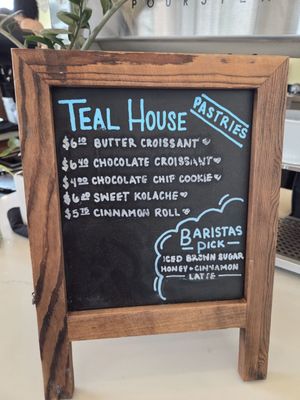 TEAL HOUSE
PASTRIES
BUTTER CROISSANT
CHOCOLATE CROISSANT
CHOCOLATE CHIP COOKIE
SWEET KOLACHE
CINNAMON ROLL
BARISTAS
PICK
ICED BROWN SUGAR
HONEY + CINNAMON
LATTE